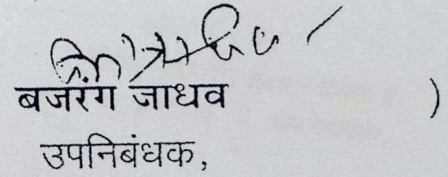 बजरंग जाधव )
उपनिबंधक,